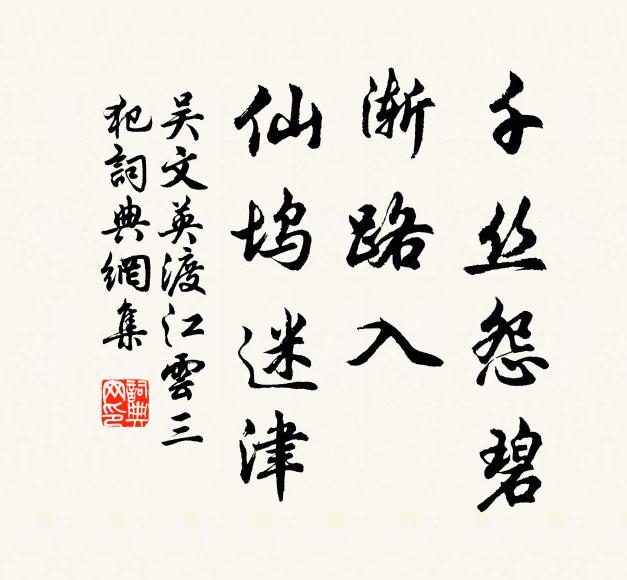 千丝怨碧
渐路入
仙坞迷津
吴文英渡江雲三
犯詞典網集
詞典网印